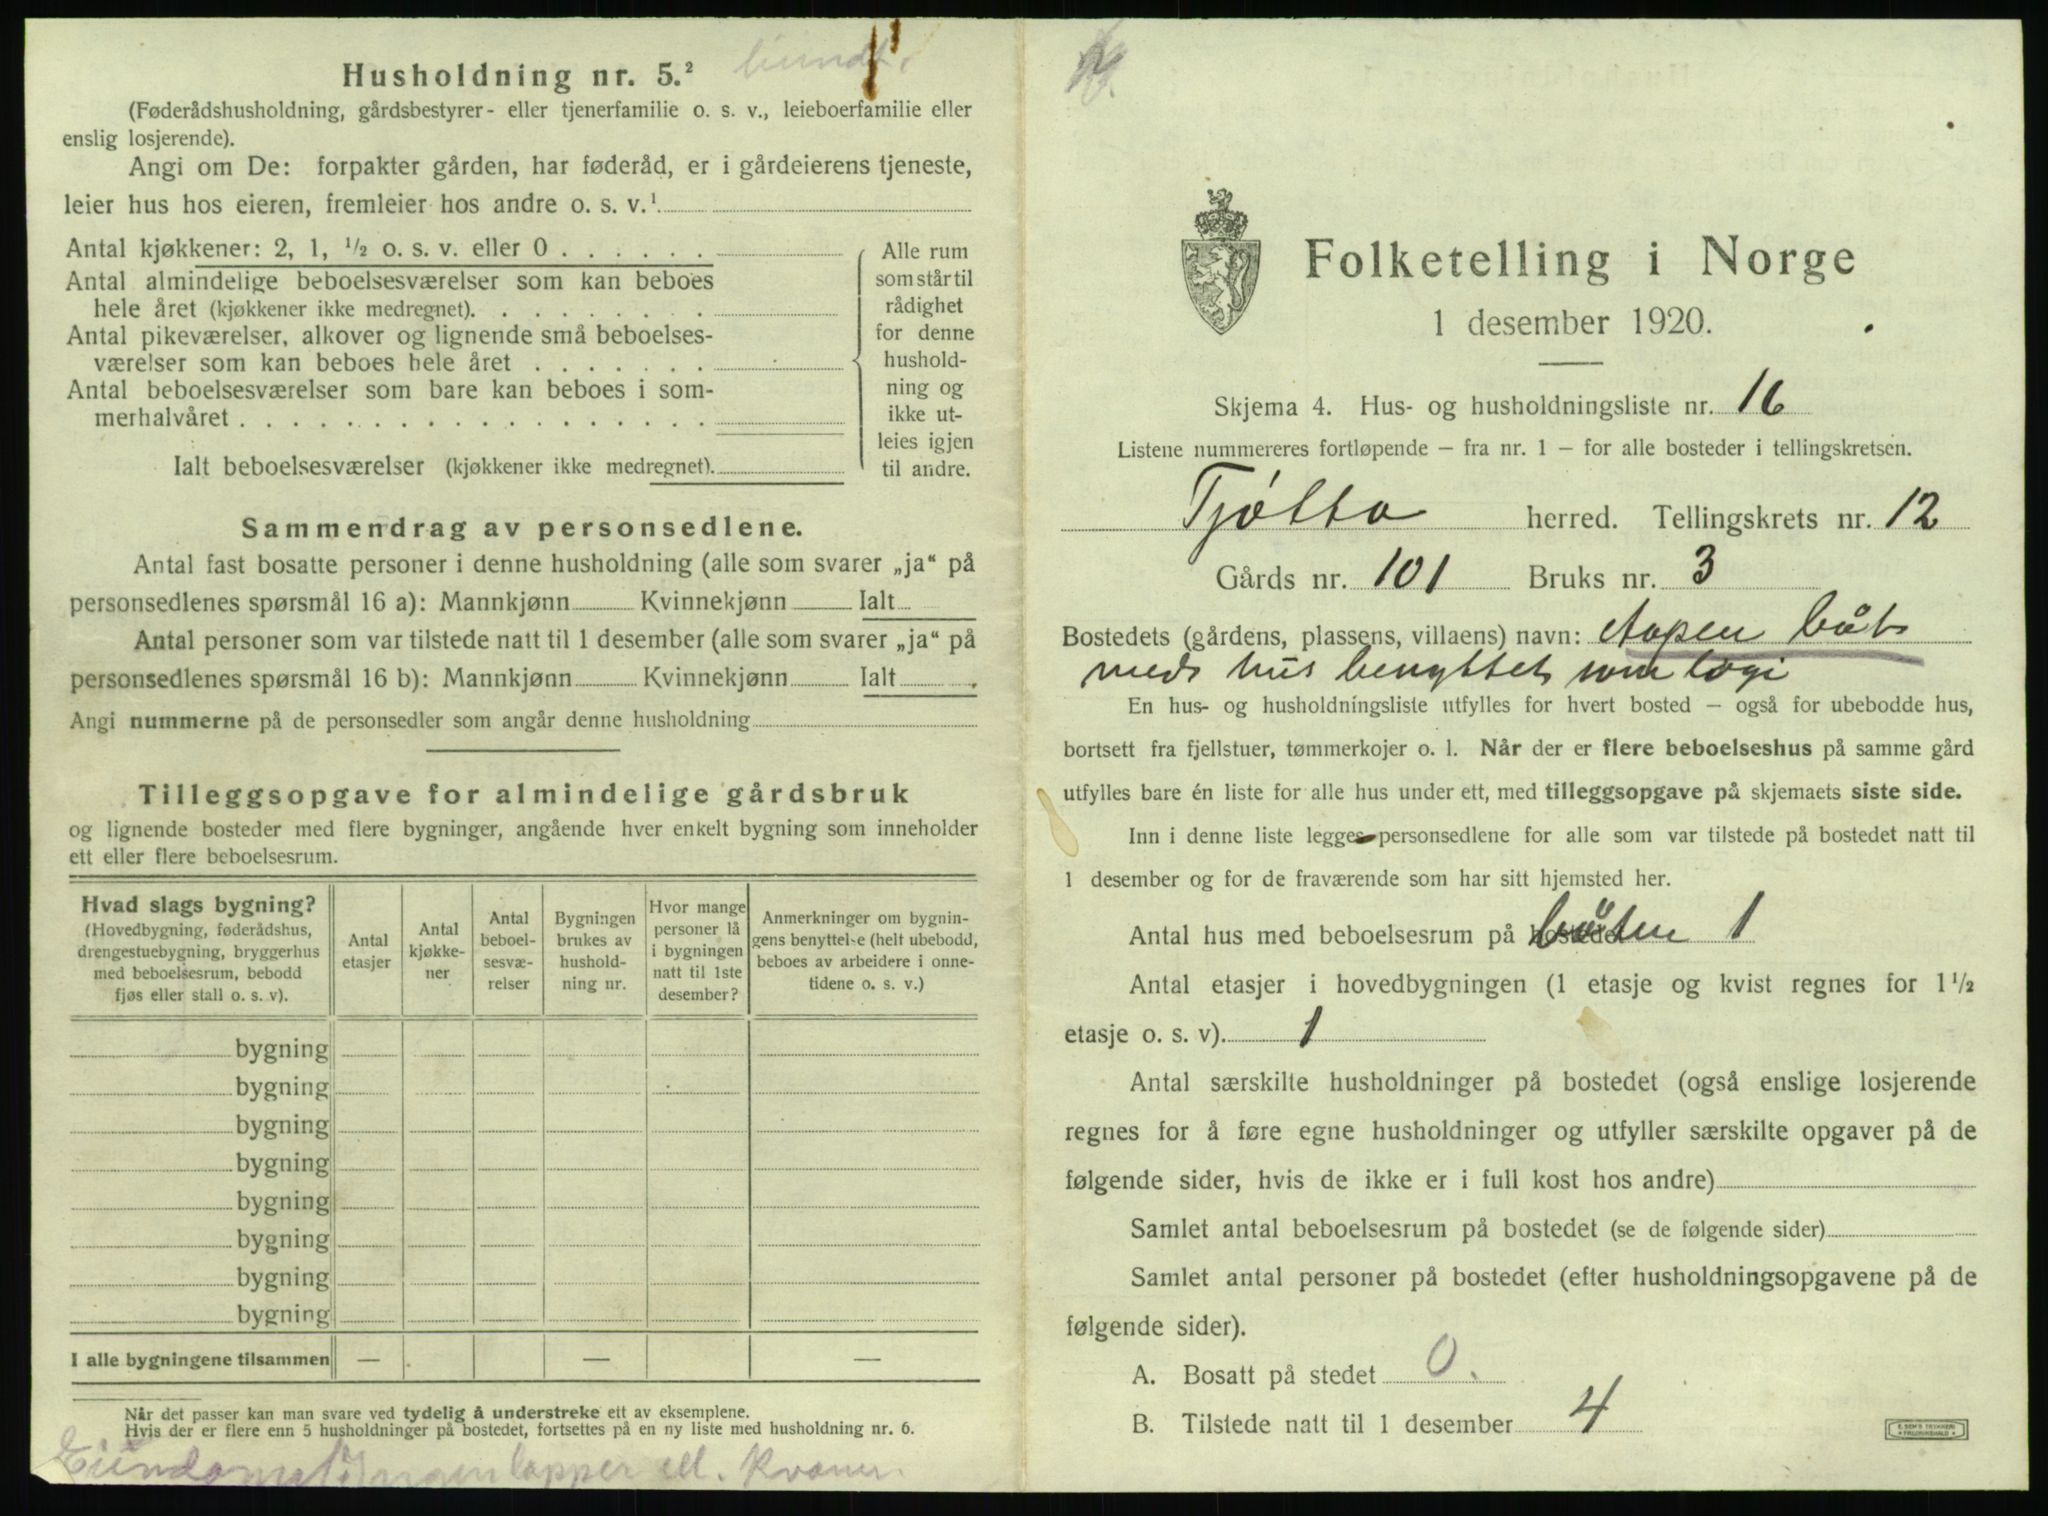 Husholdning nr. 5.²
(Føderådshusholdning, gårdsbestyrer- eller tjenerfamilie o. s. v., leieboerfamilie eller
enslig losjerende).
Angi om De: forpakter gården, har føderåd, er i gårdeierens tjeneste,
leier hus hos eieren, fremleier hos andre o. s. v.¹
Antal kjøkkener: 2, 1, ½ o. s. v. eller 0 . . . . . .
Antal almindelige beboelsesværelser som kan beboes
hele året (kjøkkener ikke medregnet). . . . . . . . .
Antal pikeværelser, alkover og lignende små beboelses-
værelser som kan beboes hele året . . . . . . .
Antal beboelsesværelser som bare kan beboes i som-
merhalvåret . . . . . . . . . . . . . . . . . .
Ialt beboelsesværelser (kjøkkener ikke medregnet).
Alle rum
som står til
rådighet
for denne
hushold-
ning og
ikke ut-
leies igjen
til andre.
Sammendrag av personsedlene.
Antal fast bosatte personer i denne husholdning (alle som svarer „ja“ på
personsedlenes spørsmål 16 a): Mannkjønn Kvinnekjønn Ialt
Antal personer som var tilstede natt til 1 desember (alle som svarer „ja“ på
personsedlenes spørsmål 16 b): Mannkjønn Kvinnekjønn Ialt
Angi nummerne på de personsedler som angår denne husholdning
Tilleggsopgave for almindelige gårdsbruk
og lignende bosteder med flere bygninger, angående hver enkelt bygning som inneholder
ett eller flere beboelsesrum.
Hvad slags bygning?
(Hovedbygning, føderådshus,
drengestuebygning, bryggerhus
med beboelsesrum, bebodd
fjøs eller stall o. s. v).
Antal
etasjer
Antal
kjøkke-
ner
Antal
beboel-
sesvæ-
relser
Bygningen
brukes av
hushold-
ning nr.
Hvor mange
personer lå
i bygningen
natt til 1ste
desember?
Anmerkninger om bygnin-
gens benyttelse (helt ubebodd,
beboes av arbeidere i onne-
tidene o. s. v.)
bygning
bygning
bygning
bygning
bygning
bygning
bygning
bygning
I alle bygningene tilsammen — — —
Når det passer kan man svare ved tydelig å understreke ett av eksemplene.
Hvis der er flere enn 5 husholdninger på bostedet, fortsettes på en ny liste med husholdning nr. 6.
Ingen lapper ell. kvæner.
Folketelling i Norge
1 desember 1920.
Skjema 4. Hus- og husholdningsliste nr. 16
Listene nummereres fortløpende — fra nr. 1 — for alle bosteder i tellingskretsen.
Tjøtta herred. Tellingskrets nr. 12
Gårds nr. 101 Bruks nr. 3
Bostedets (gårdens, plassens, villaens) navn: Aapen båt
med hus benyttet som logi
En hus- og husholdningsliste utfylles for hvert bosted — også for ubebodde hus,
bortsett fra fjellstuer, tømmerkojer o. l. Når der er flere beboelseshus på samme gård
utfylles bare én liste for alle hus under ett, med tilleggsopgave på skjemaets siste side.
Inn i denne liste legges personsedlene for alle som var tilstede på bostedet natt til
1 desember og for de fraværende som har sitt hjemsted her.
Antal hus med beboelsesrum på båten 1
Antal etasjer i hovedbygningen (1 etasje og kvist regnes for 1½
etasje o. s. v). 1
Antal særskilte husholdninger på bostedet (også enslige losjerende
regnes for å føre egne husholdninger og utfyller særskilte opgaver på de
følgende sider, hvis de ikke er i full kost hos andre)
Samlet antal beboelsesrum på bostedet (se de følgende sider)
Samlet antal personer på bostedet (efter husholdningsopgavene på de
følgende sider).
A. Bosatt på stedet 0.
B. Tilstede natt til 1 desember 4